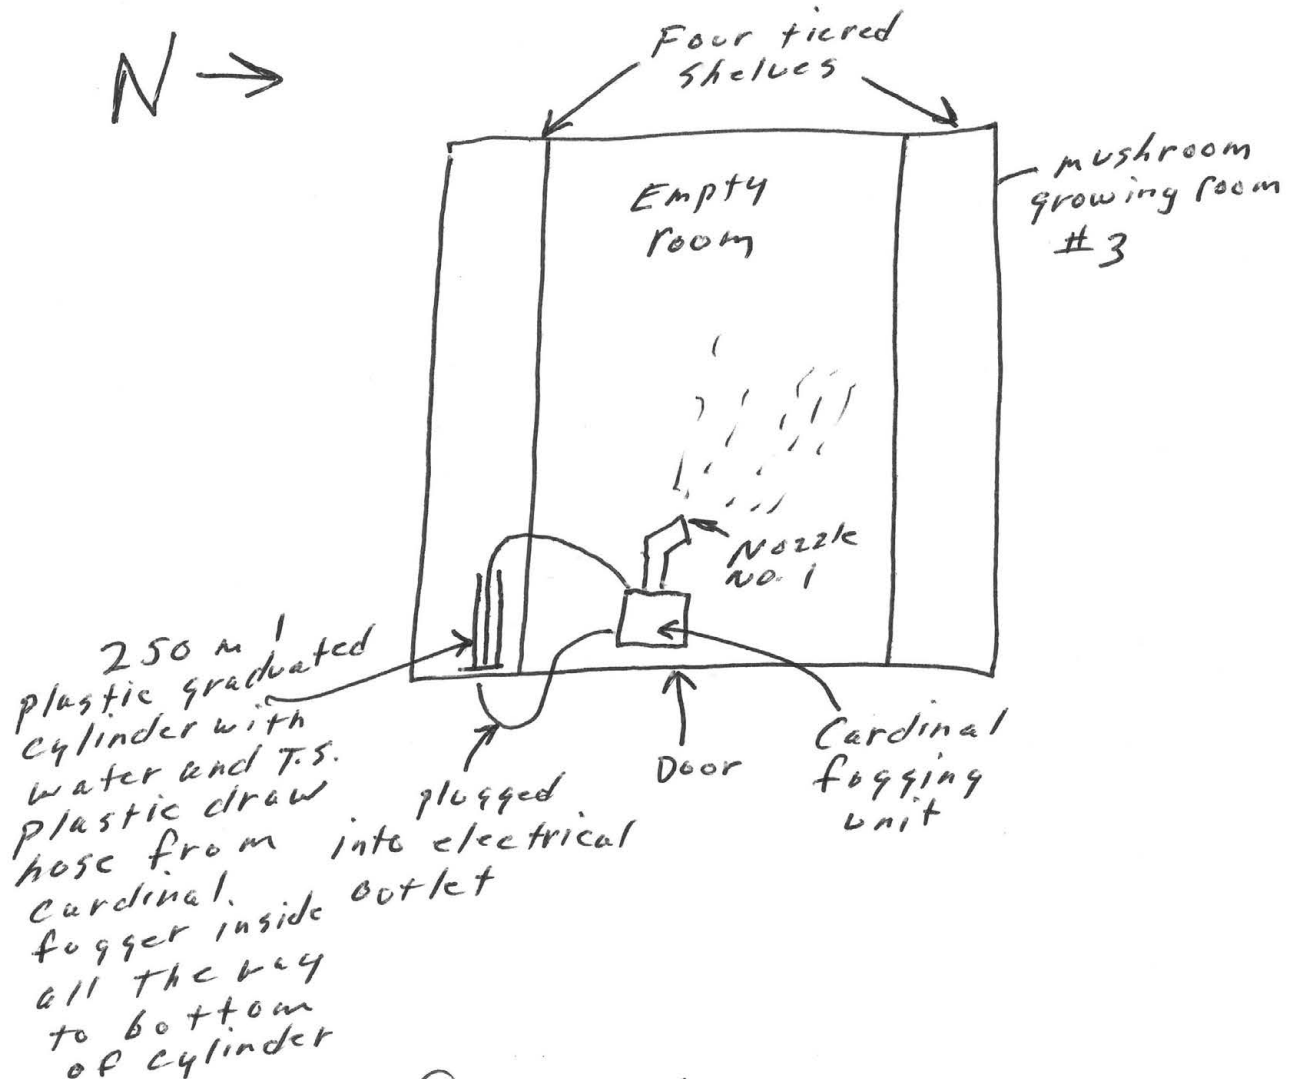 N
Four tiered
shelves
mushroom
growing room
#3
Empty
room
Nozzle
No. 1
250 ml
plastic graduated
cylinder with
water and T.S.
plastic draw
hose from
Cardinal.
fogger inside
all the way
to bottom
of cylinder
plugged
into electrical
outlet
Door
Cardinal
fogging
unit